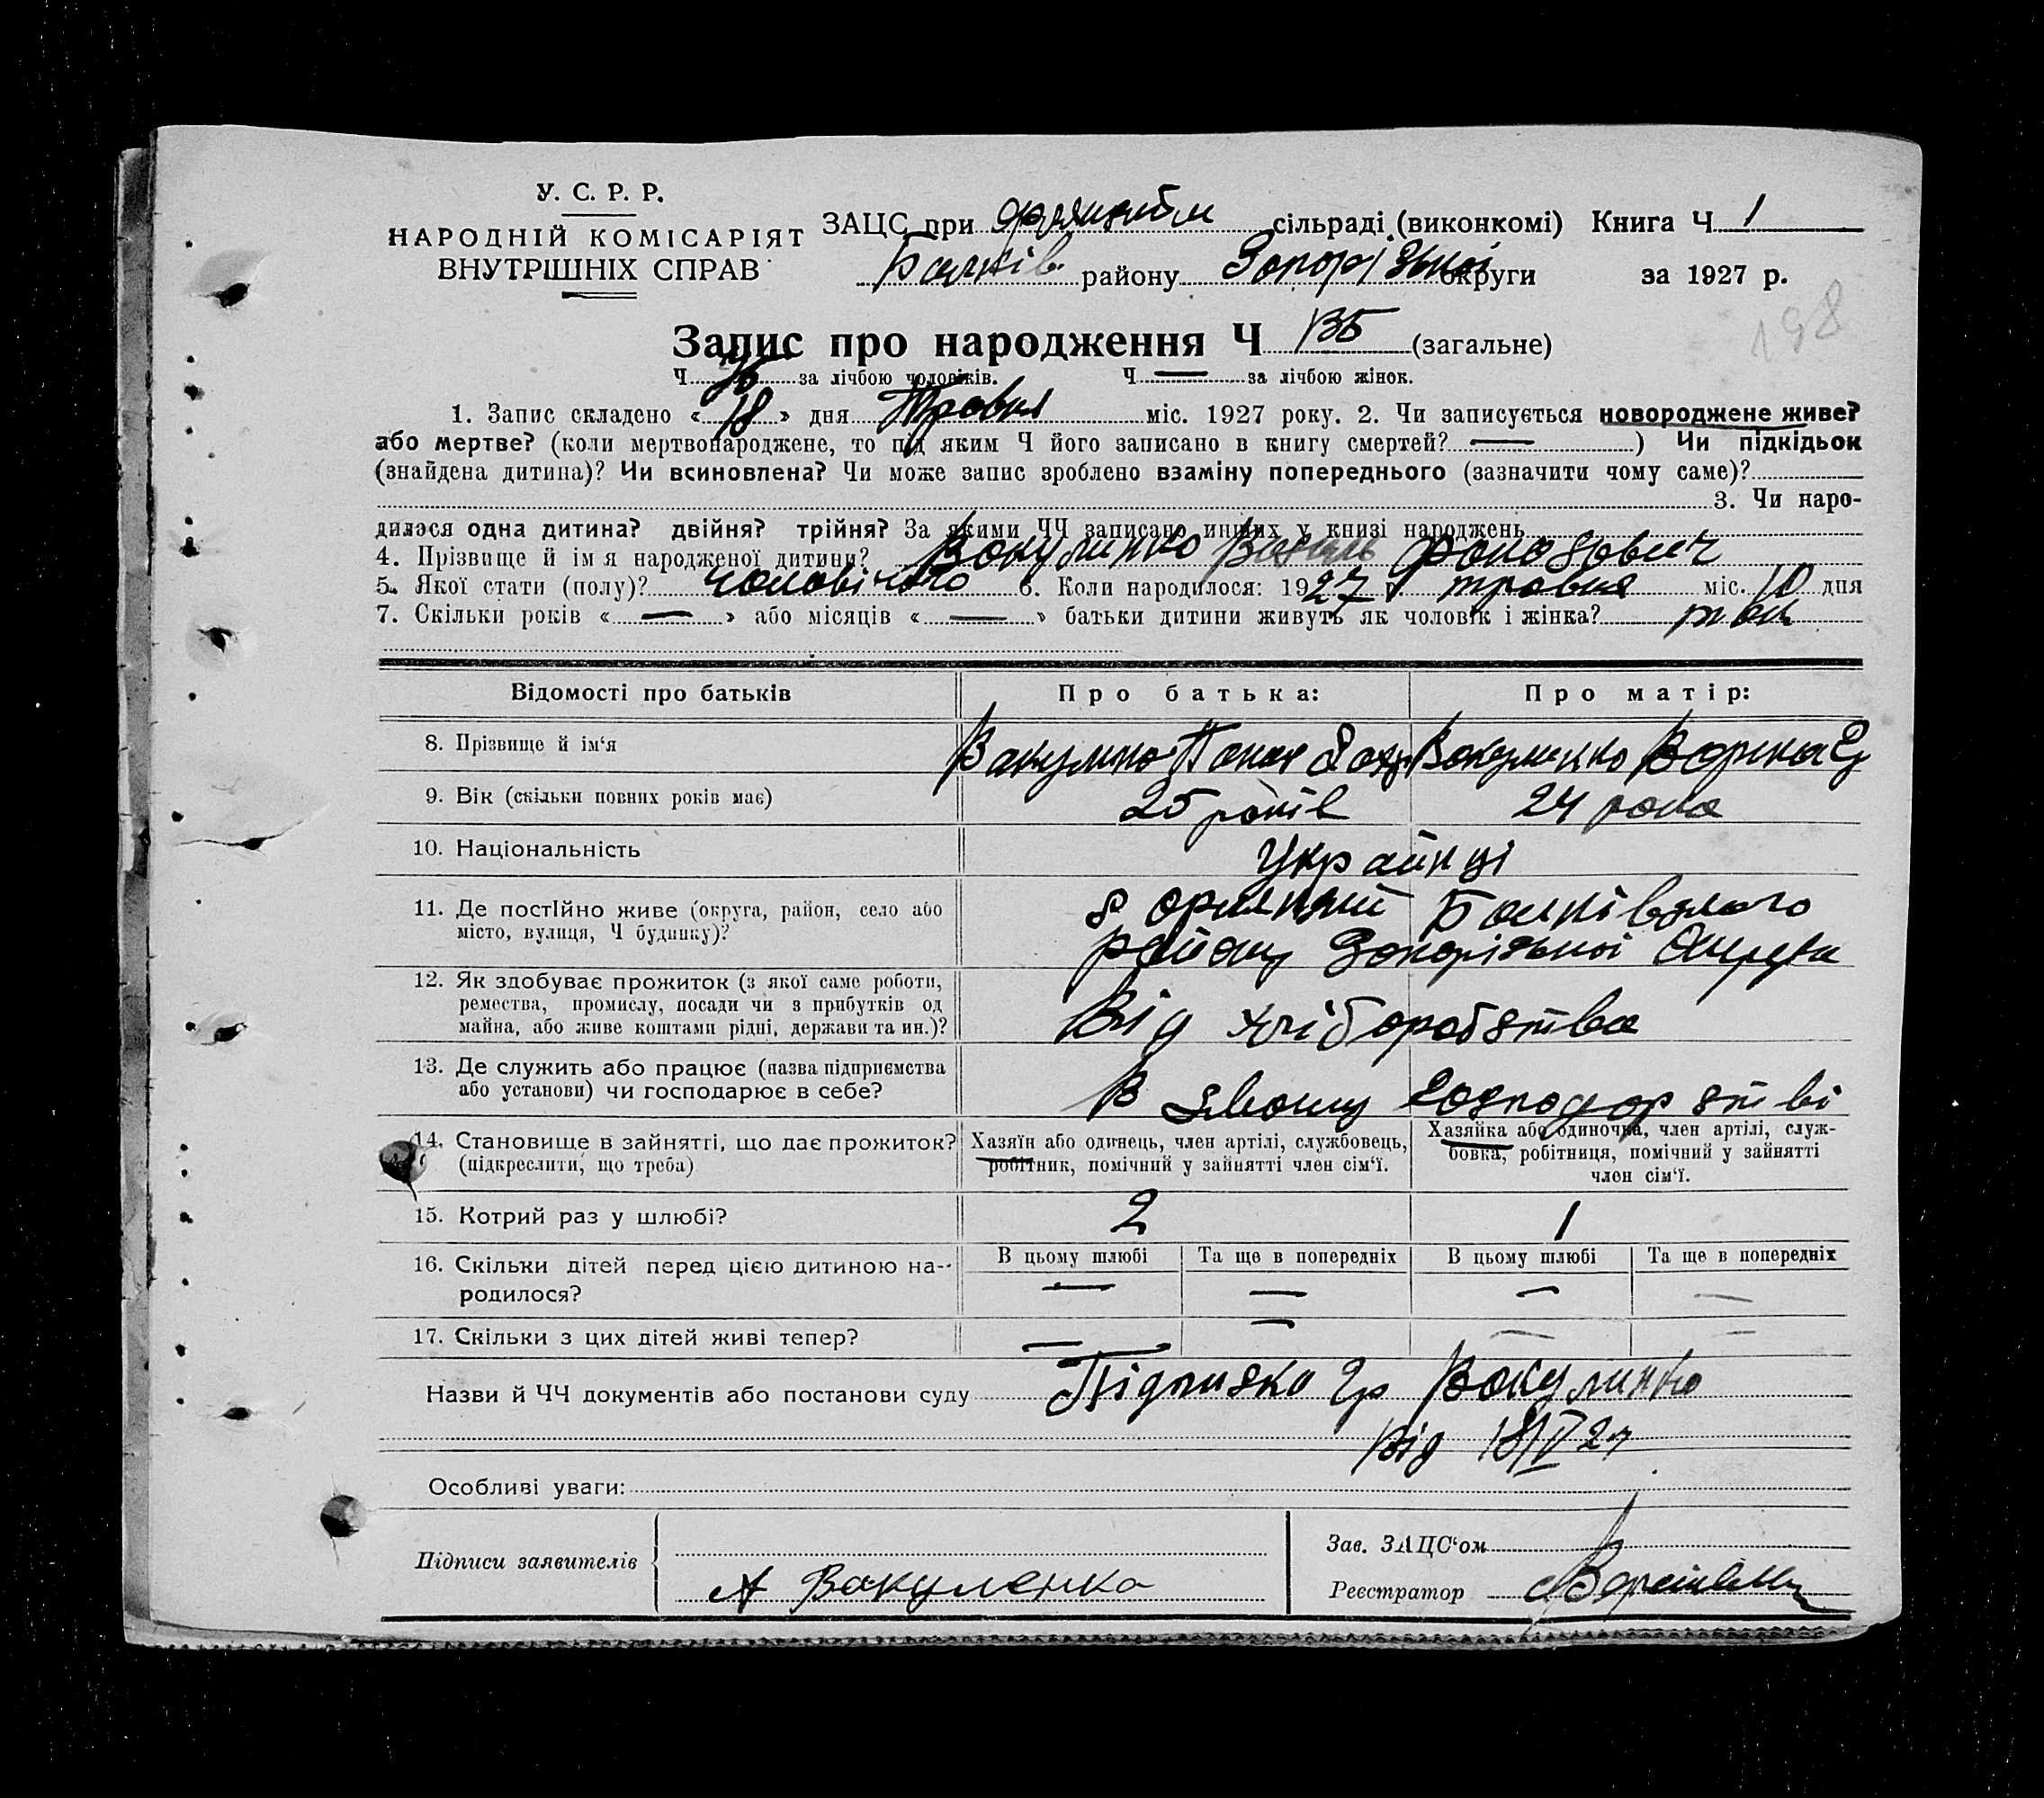 У. С. Р. Р.
НАРОДНІЙ КОМІСАРІЯТ
ВНУТРІШНІХ СПРАВ
ЗАЦС при сільраді (виконкомі) Книга Ч 1
Балків району Запорізької округи за 1927 р.
198
Запис про народження Ч 135 (загальне)
Ч за лічбою чоловіків. Ч — за лічбою жінок.
1. Запис складено « 18 » дня Травня міс. 1927 року. 2. Чи записується новороджене живе?
або мертве? (коли мертвонароджене, то під яким Ч його записано в книгу смертей? — ) Чи підкідьок
(знайдена дитина)? Чи всиновлена? Чи може запис зроблено взаміну попереднього (зазначити чому саме)?
3. Чи наро-
дилася одна дитина? двійня? трійня? За якими ЧЧ записано инших у книзі народжень
4. Прізвище й ім я народженої дитини? Вакулинко Василь Фанасович
5. Якої стати (полу)? чоловічого 6. Коли народилося: 1927 р. травня міс. 10 дня
7. Скільки років « — » або місяців « — » батьки дитини живуть як чоловік і жінка? так
Відомості про батьків Про батька: Про матір:
8. Прізвище й ім‘я Вакулинко Панас Захар Вакуменко Варка
9. Вік (скільки повних років має) 25 років 24 рока
10. Національність Українці
11. Де постійно живе (округа, район, село або
місто, вулиця, Ч будинку)?
Балківського
району Запорізької Округи
12. Як здобуває прожиток (з якої саме роботи,
ремества, промислу, посади чи з прибутків од
майна, або живе коштами рідні, держави та ин.)?
Від хліборобства
13. Де служить або працює (назва підприємства
або установи) чи господарює в себе?
В свому господарстві
14. Становище в зайнятті, що дає прожиток?
(підкреслити, що треба)
Хазяїн або одинець, член артілі, службовець,
робітник, помічний у зайнятті член сім‘ї.
Хазяйка або одиночка, член артілі, служ-
бовка, робітниця, помічний у зайнятті
член сім‘ї.
15. Котрий раз у шлюбі? 2 1
16. Скільки дітей перед цією дитиною на-
родилося?
В цьому шлюбі Та ще в попередніх В цьому шлюбі Та ще в попередніх
— — — —
17. Скільки з цих дітей живі тепер? — — — —
Назви й ЧЧ документів або постанови суду Підписка гр Вакулинко
від 18/V 27
Особливі уваги:
Підписи заявителів
А Вакуленко
Зав. ЗАЦС‘ом
Реєстратор